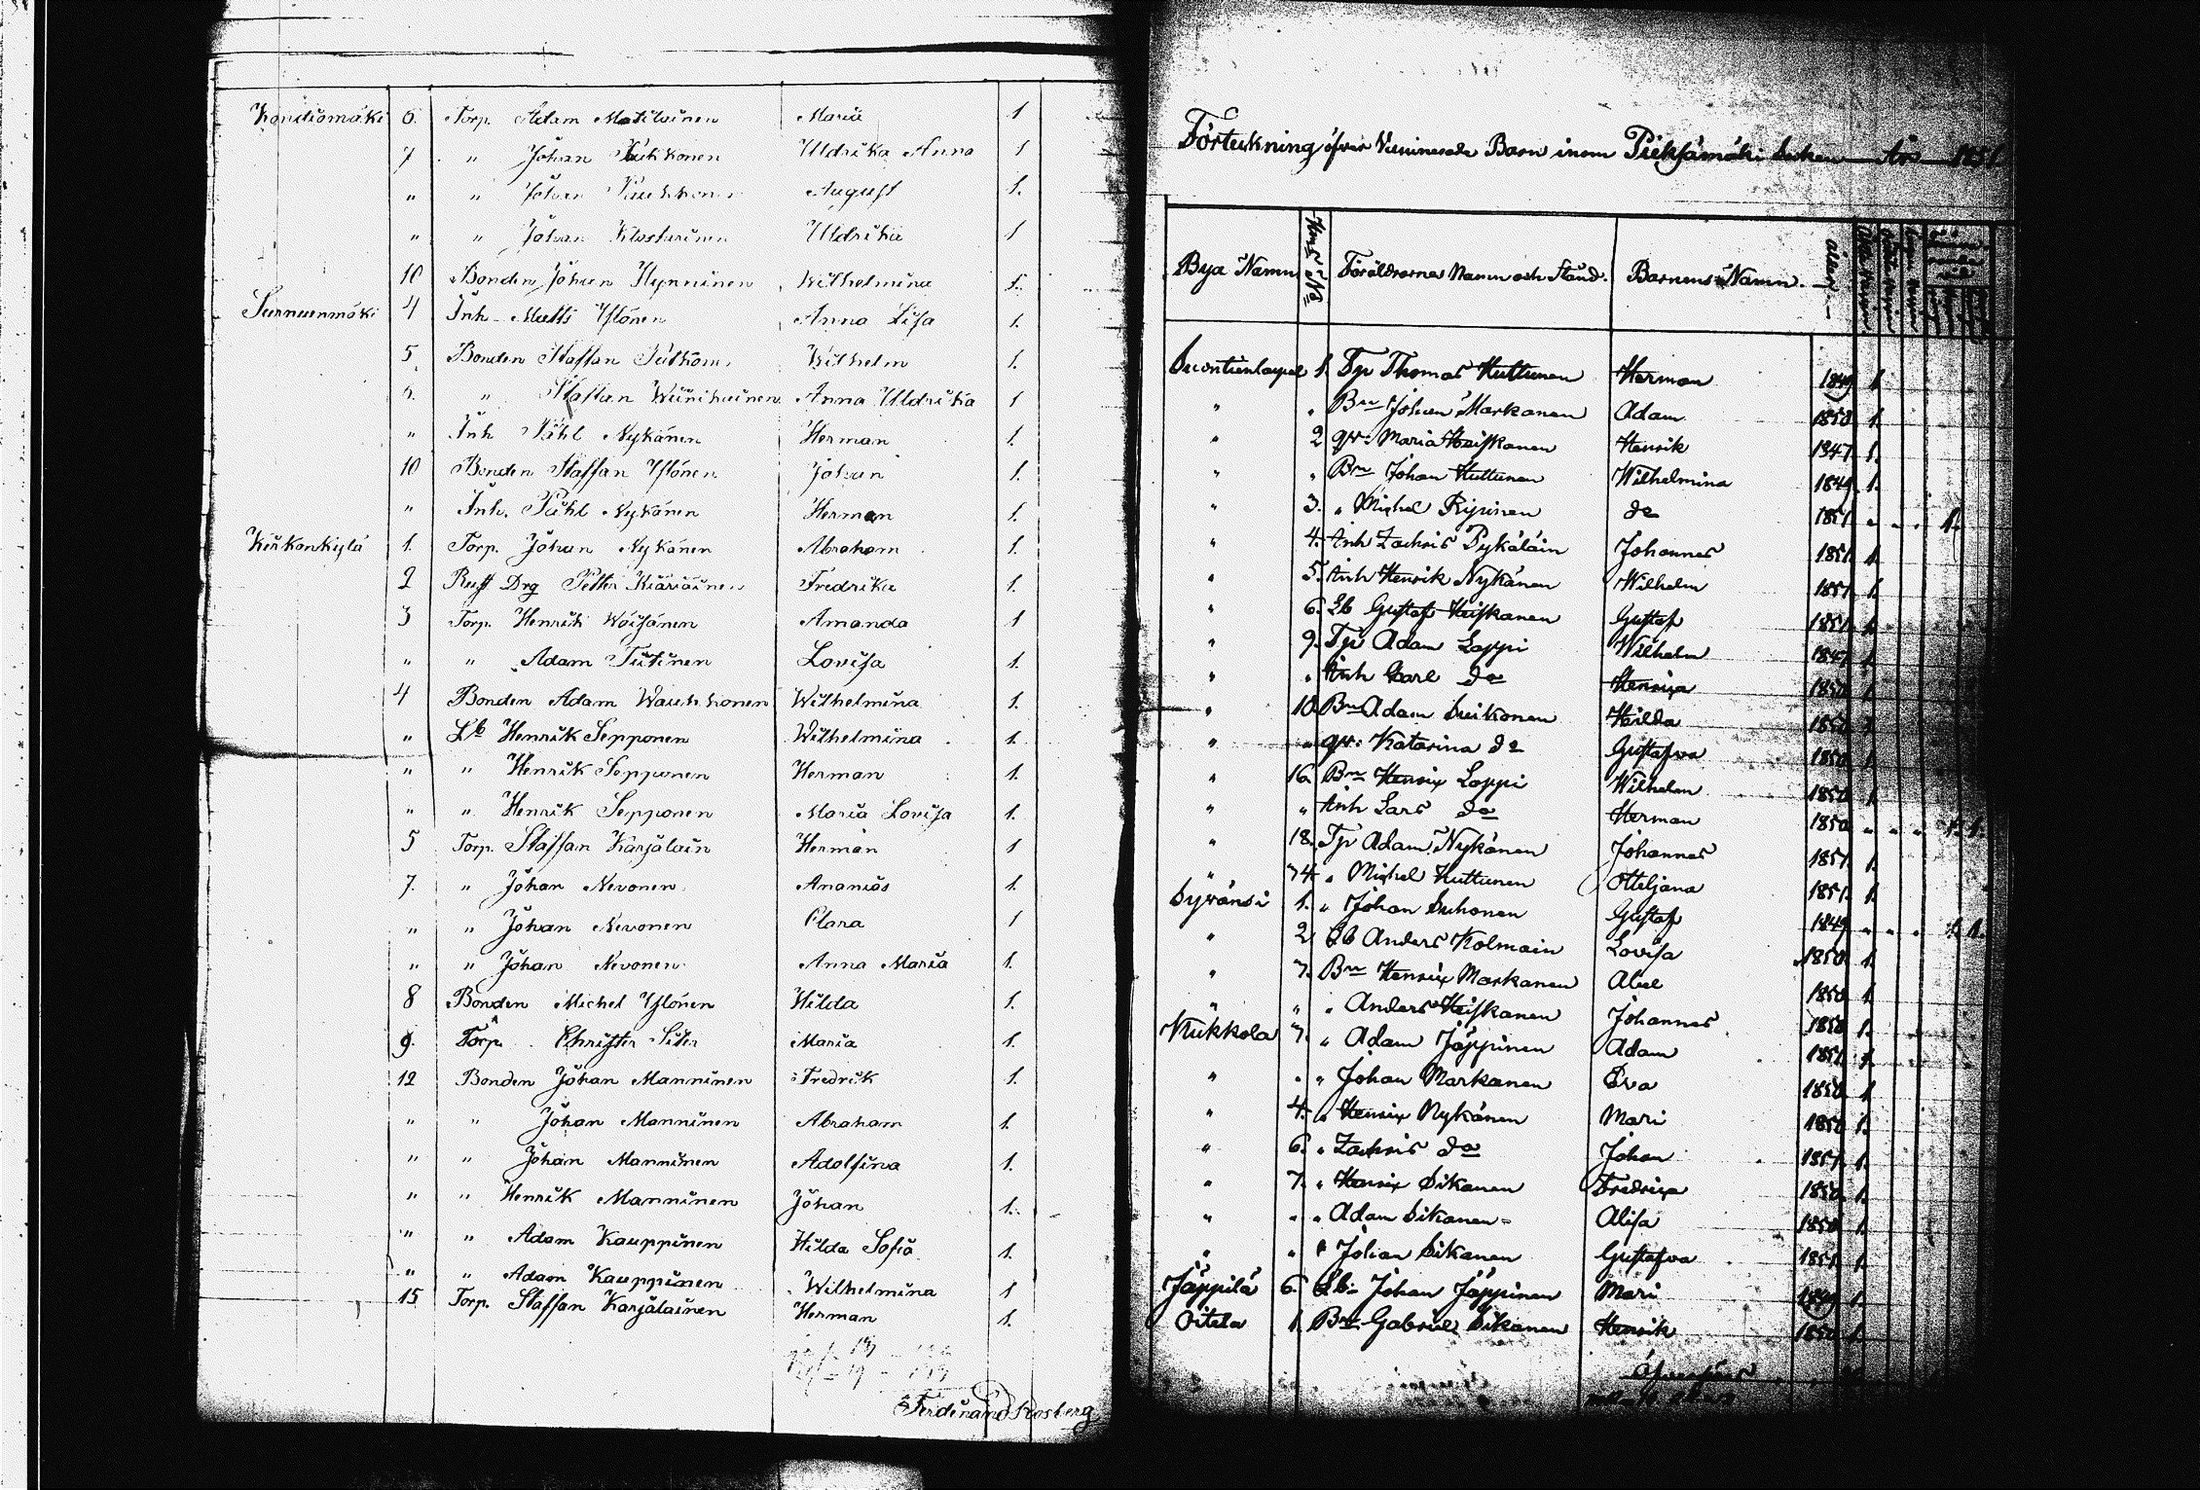 Kontiomäki 6. Torp. Adam Matilainen Maria 1
7 " Johan Puikkonen Uldrika Anna 1
" " Johan Puikkonen August 1.
" " Johan Uldrika 1
10 Bonden Johan Hynninen Wilhelmina 1.
Surnuenmäki 4 Inh. Matts Ylönen Anna Lisa 1.
5. Bonden Staffan Wilhelm 1.
" Staffan Wäinikainen Anna Uldrika 1
" Inh Påhl Nykänen Herman 1.
10 Bonden Staffan Ylönen Johan 1.
" Inh. Påhl Nykänen Herman 1.
Kirkonkylä 1. Torp. Johan Nykänen Abraham 1.
2 Ruff Drg Petter Kiäriäinen Fredrika 1.
3 Torp. Henrik Wäisänen Amanda 1
" " Adam Tiitinen Lovisa 1.
4 Bonden Adam Wauhkonen Wilhelmina 1.
" Lb Henrik Sepponen Wilhelmina 1.
" " Henrik Sepponen Herman 1.
" " Henrik Sepponen Maria Lovisa 1.
5 Torp. Staffan Karjalain Herman 1
7. " Johan Nevonen Ananias 1.
" " Johan Nevonen Clara 1
" " Johan Nevonen Anna Maria 1.
8 Bonden Michel Ylönen Hilda 1.
9. Torp. Christer Maria 1.
12 Bonden Johan Manninen Fredrik 1.
" " Johan Manninen Abraham 1.
" " Johan Manninen Adolfina 1.
" " Henrik Manninen Johan 1.
" " Adam Kauppinen Hilda Sofia 1.
" " Adam Kauppinen Wilhelmina 1
15 Torp. Staffan Karjalainen Herman 1.
Ferdinand Rosberg
Förteckning öfver Vaccinerade Barn inom Pieksämäki Socken År 1851.
Bya Namn Föräldrarnes Namn och Stånd. Barnens Namn.
Suontienlaipal 1. Tp Thomas Huttunen Herman 1849 1.
" " Bn Johan Markanen Adam 1850 1.
" 2 qv: Maria Heiskanen Henrik 1847. 1.
" " Bn Johan Huttunen Wilhelmina 1849. 1.
" 3. " Michel Ryinen do 1851 " " " 1.
" 4. Inh Zachris Pykäläin Johannes 1851. 1.
" 5. Inh Henrik Nykänen Wilhelm 1851. 1.
" 6. Lb Gustaf Heiskanen Gustaf 1851. 1.
" 9. Tp Adam Loppi Wilhelm 1847. 1.
" " Inh Carl do Henrica 1850 1.
" 10. Bn Adam Suikonen Hilda 1850
" " qv: Katarina do Gustafva 1850 1.
" 16. Bn Henrix Loppi Wilhelm 1850 1.
" " Inh Lars do Herman 1850 " " " 1. 1.
" 18. Tp Adam Nykänen Johannes 1851. 1.
" 74. " Michel Huttunen Otteljana 1851. 1.
Syvänsi 1. " Johan Suhonen Gustaf 1849. " " " 1. 1.
" 2. Lb Anders Kolmain Lovisa 1850. 1.
" 7. Bn Henrix Markanen Abel 1850 1.
" " " Anders Heiskanen Johannes 1850 1.
Niikkola 7. " Adam Jäppinen Adam 1851. 1.
" " " Johan Markanen Eva 1850 1
" 4. " Henrix Nykänen Mari 1850 1.
" 6. " Zachris do Johan 1851. 1.
" 7. " Henrix Sikanen Fredrica 1850. 1.
" " " Adam Sikanen Alisa 1850 1.
" " " Johan Sikanen Gustafva 1851. 1.
Jäppilä 6. Lb Johan Jäppinen Mari 1849 1.
Oitila 1. Bn Gabriel Sikanen Henrik 1850 1.